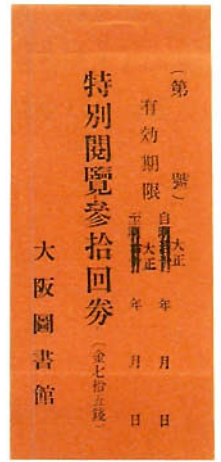 (第　號)
有効期限
自大正　年　月　日
至大正　年　月　日
特別閲覽參拾回券
(金七拾五錢)
大阪圖書館